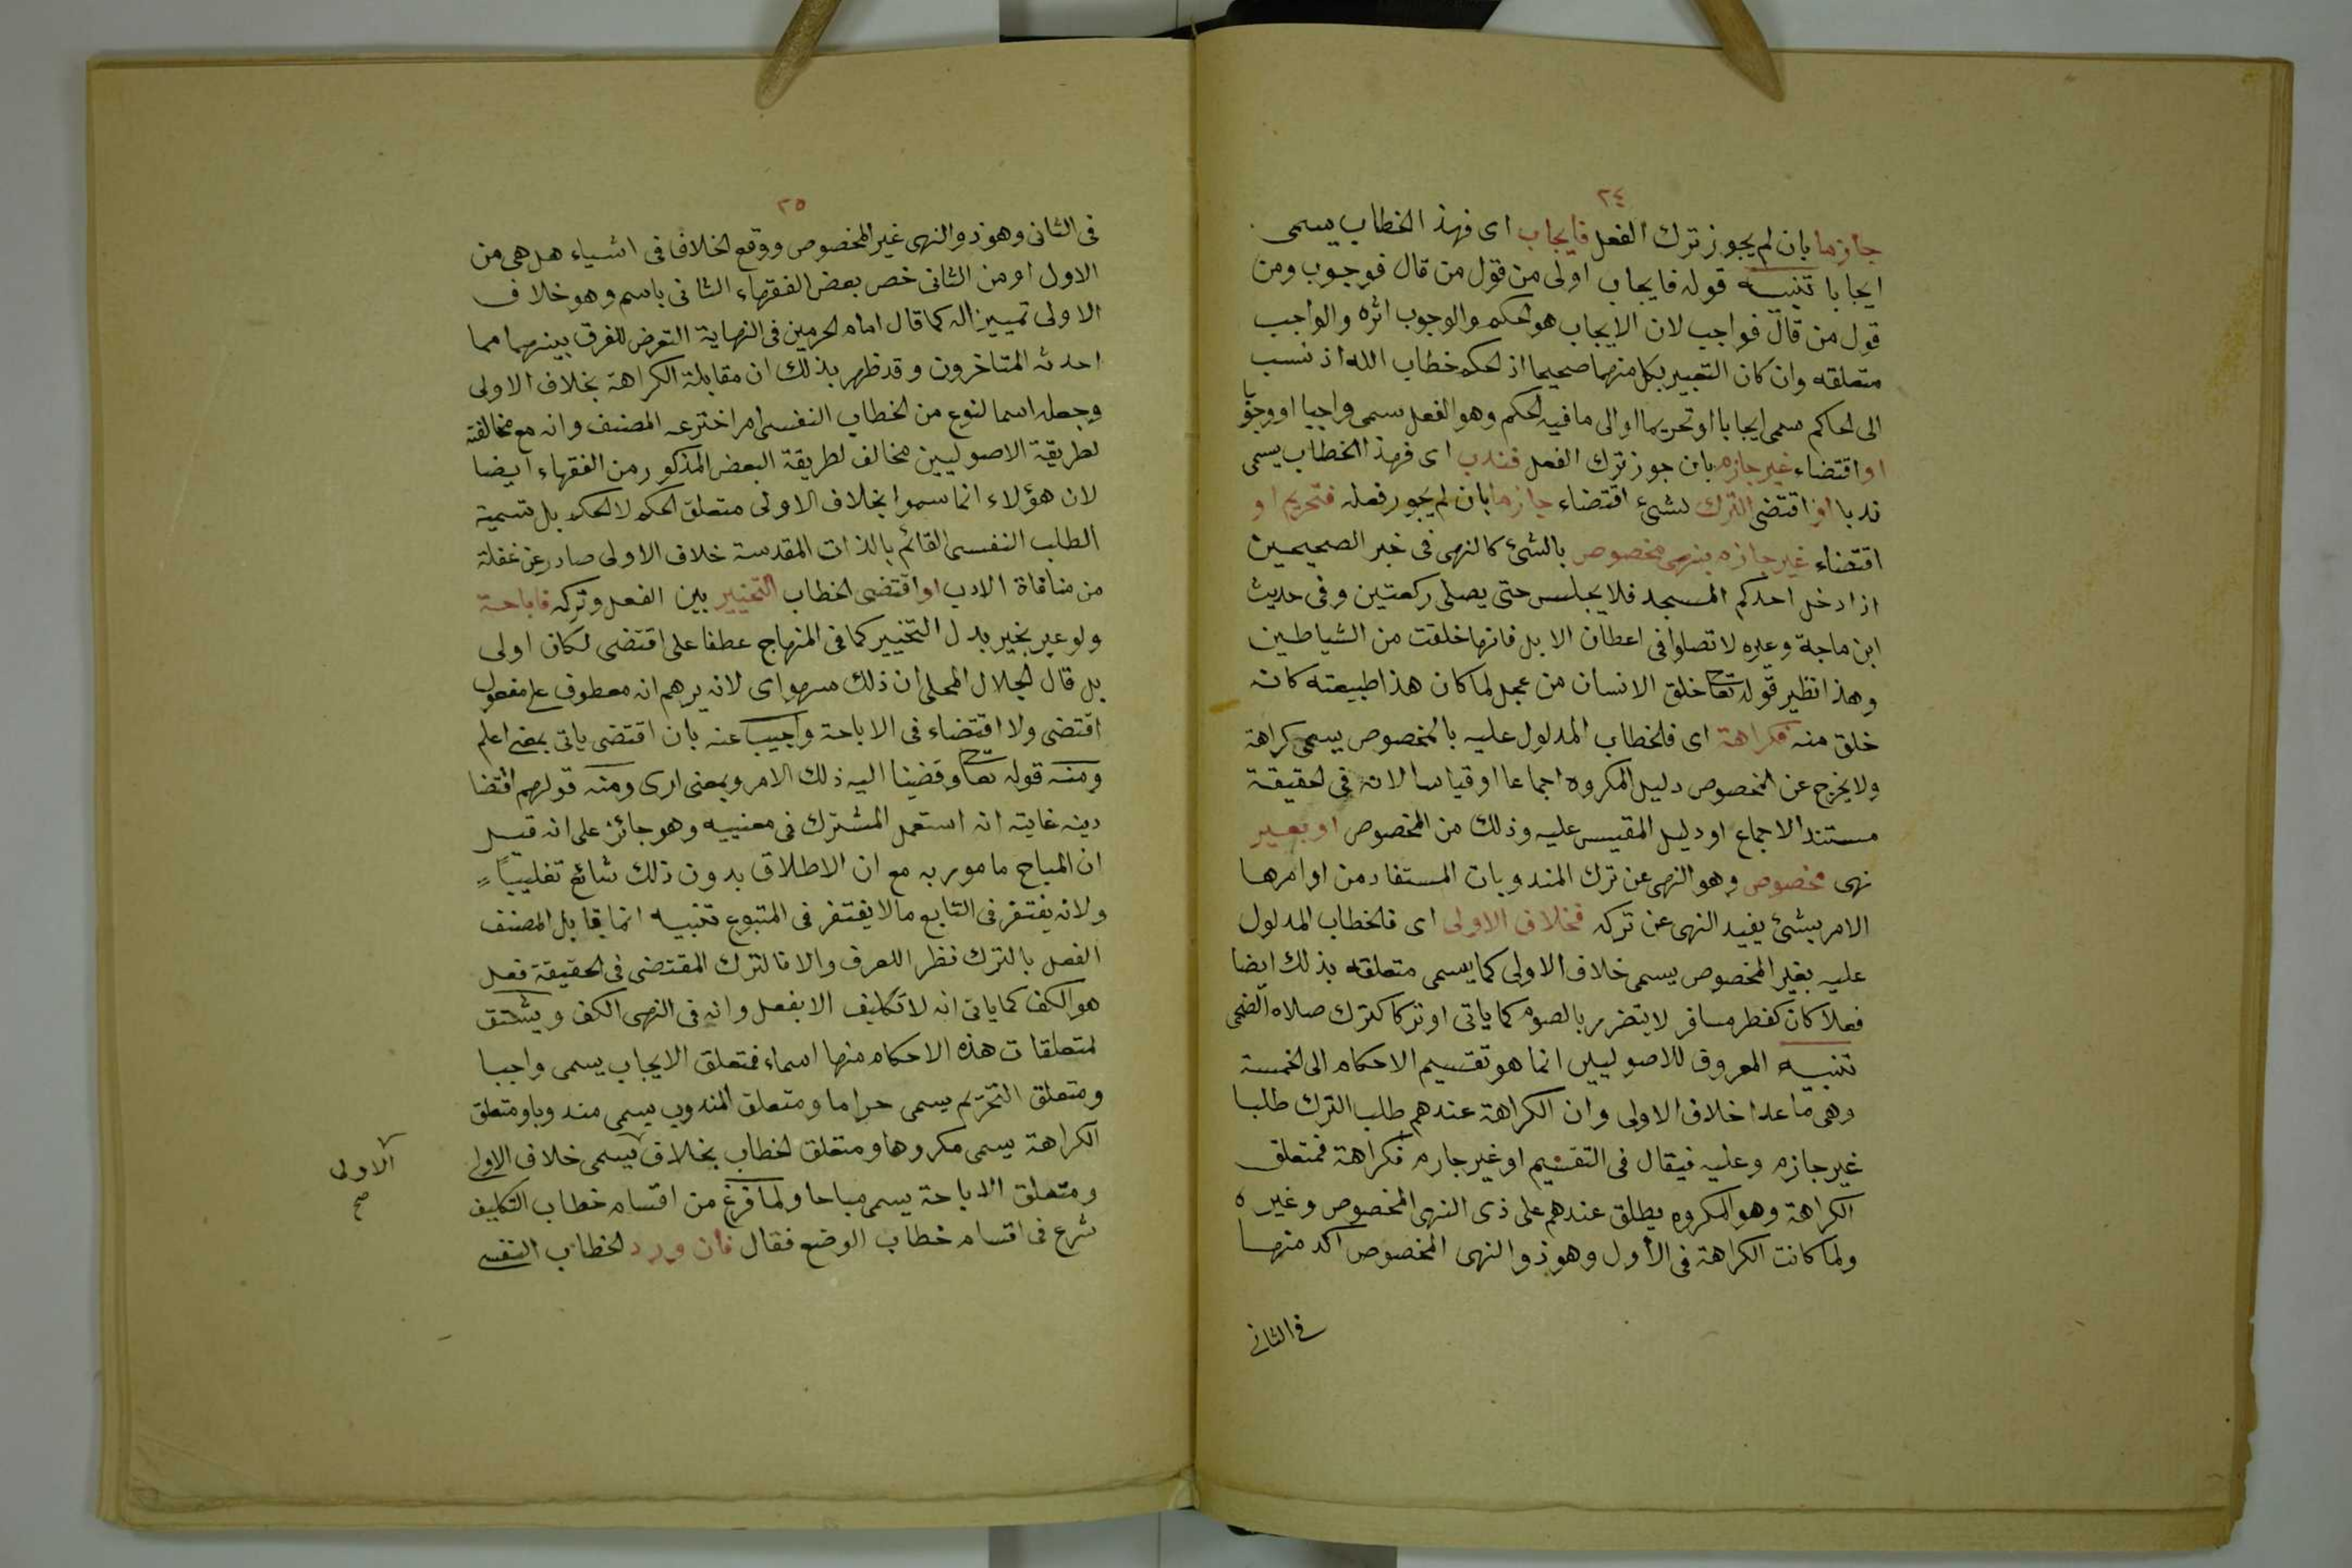 ٢٤
جازما بان لم يجوز ترك الفعل فايجاب اى فهذ الخطاب يسمى
ايجابا تنبيه قوله فايجاب اولى من قول من قال فوجوب ومن
قول من قال فواجب لان الايجاب هو الحكم والوجوب اثره والواجب
متعلقه وان كان التعبير بكل منهما صحيحا اذ الحكم خطاب الله اذ نسب
الى الحاكم سمى ايجابا او تحريما او الى ما فيه الحكم وهو الفعل سمى واجبا او وجوبا
او اقتضاء غير جازم بان جوز ترك الفعل فندب اى فهذا الخطاب يسمى
ندبا او اقتضى الترك لشئ اقتضاء جازما بان لم يجوز فعله فتحريم او
اقتضاء غير جازم بنهى مخصوص بالشئ كالنهى فى خبر الصحيحين
اذا دخل احدكم المسجد فلا يجلس حتى يصلى ركعتين وفى حديث
ابن ماجة وغيره لا تصلوا فى اعطان الابل فانها خلقت من الشياطين
وهذا نظير قوله تعا خلق الانسان من عجل لما كان هذا طبيعته كانه
خلق منه فكراهة اى فالخطاب المدلول عليه بالمخصوص يسمى كراهة
ولا يخرج عن المخصوص دليل المكروه اجماعا او قياسا لانه فى الحقيقة
مستند الاجماع او دليل المقيس عليه وذلك من المخصوص او بغير
نهى مخصوص وهو النهى عن ترك المندوبات المستفاد من اوامرها
الامر بشئ يفيد النهى عن تركه فخلاف الاولى اى فالخطاب المدلول
عليه بغير المخصوص يسمى خلاف الاولى كما يسمى متعلقه بذلك ايضا
فعلا كان كفطر مسافر لا يتضرر بالصوم كما ياتى او تركا كترك صلاه الضحى
تنبيه المعروف للاصوليين انما هو تقسيم الاحكام الى الخمسة
وهى ما عدا خلاف الاولى وان الكراهة عندهم طلب الترك طلبا
غير جازم وعليه فيقال فى التقسيم او غير جازم فكراهة فمتعلق
الكراهة وهو المكروه يطلق عندهم على ذى النهى المخصوص وغيره
ولما كانت الكراهة فى الأول وهو ذو النهى المخصوص اكد منها
فى الثانى
٢٥
فى الثانى وهو ذو النهى غير المخصوص ووقع الخلاف فى اشياء هل هى من
الاول او من الثانى خص بعض الفقهاء الثانى باسم وهو خلاف
الاولى تمييزا له كما قال امام الحرمين فى النهاية التعرض للفرق بينهما مما
احدثه المتاخرون وقد ظهر بذلك ان مقابلة الكراهة بخلاف الاولى
وجعله اسما لنوع من الخطاب النفسى امر اخترعه المصنف وانه مع مخالفته
لطريقة الاصوليين مخالف لطريقة البعض المذكور من الفقهاء ايضا
لان هؤلاء انما سموا بخلاف الاولى متعلق الحكم لا الحكم بل تسمية
الطلب النفسى القائم بالذات المقدسة خلاف الاولى صادر عن غفلة
من منافاة الادب او اقتضى الخطاب التخيير بين الفعل وتركه فاباحة
ولو عبر بخير بدل التخيير كما فى المنهاج عطفا على اقتضى لكان اولى
بل قال الجلال المحلى ان ذلك سهو اى لانه يوهم انه معطوف على مفعول
اقتضى ولا اقتضاء فى الاباحة واجيب عنه بان اقتضى ياتى بمعنى اعلم
ومنه قوله تعا وقضينا اليه ذلك الامر وبمعنى ادى ومنه قولهم اقتضا
دينه غايته انه استعمل المشترك فى معنييه وهو جائز على انه قيل
ان المباح مامور به مع ان الاطلاق بدون ذلك شائع تغليبًا
ولانه يغتفر فى التابع مالا يغتفر فى المتبوع تنبيه انما يقابل المصنف
الفعل بالترك نظرا للعرف والا فالترك المقتضى فى الحقيقة فعل
هو الكف كما ياتى انه لا تكليف الا بفعل وانه فى النهى الكف ويشتق
لمتعلقات هذه الاحكام منها اسماء فمتعلق الايجاب يسمى واجبا
ومتعلق التحريم يسمى حراما ومتعلق المندوب يسمى مندوبا ومتعلق
الكراهة يسمى مكروها ومتعلق الخطاب بخلاف يسمى خلاف الاولى
ومتعلق الاباحة يسمى مباحا ولما فرغ من اقسام خطاب التكليف
شرع فى اقسام خطاب الوضع فقال فان ورد الخطاب النفسى
الاولى
صح